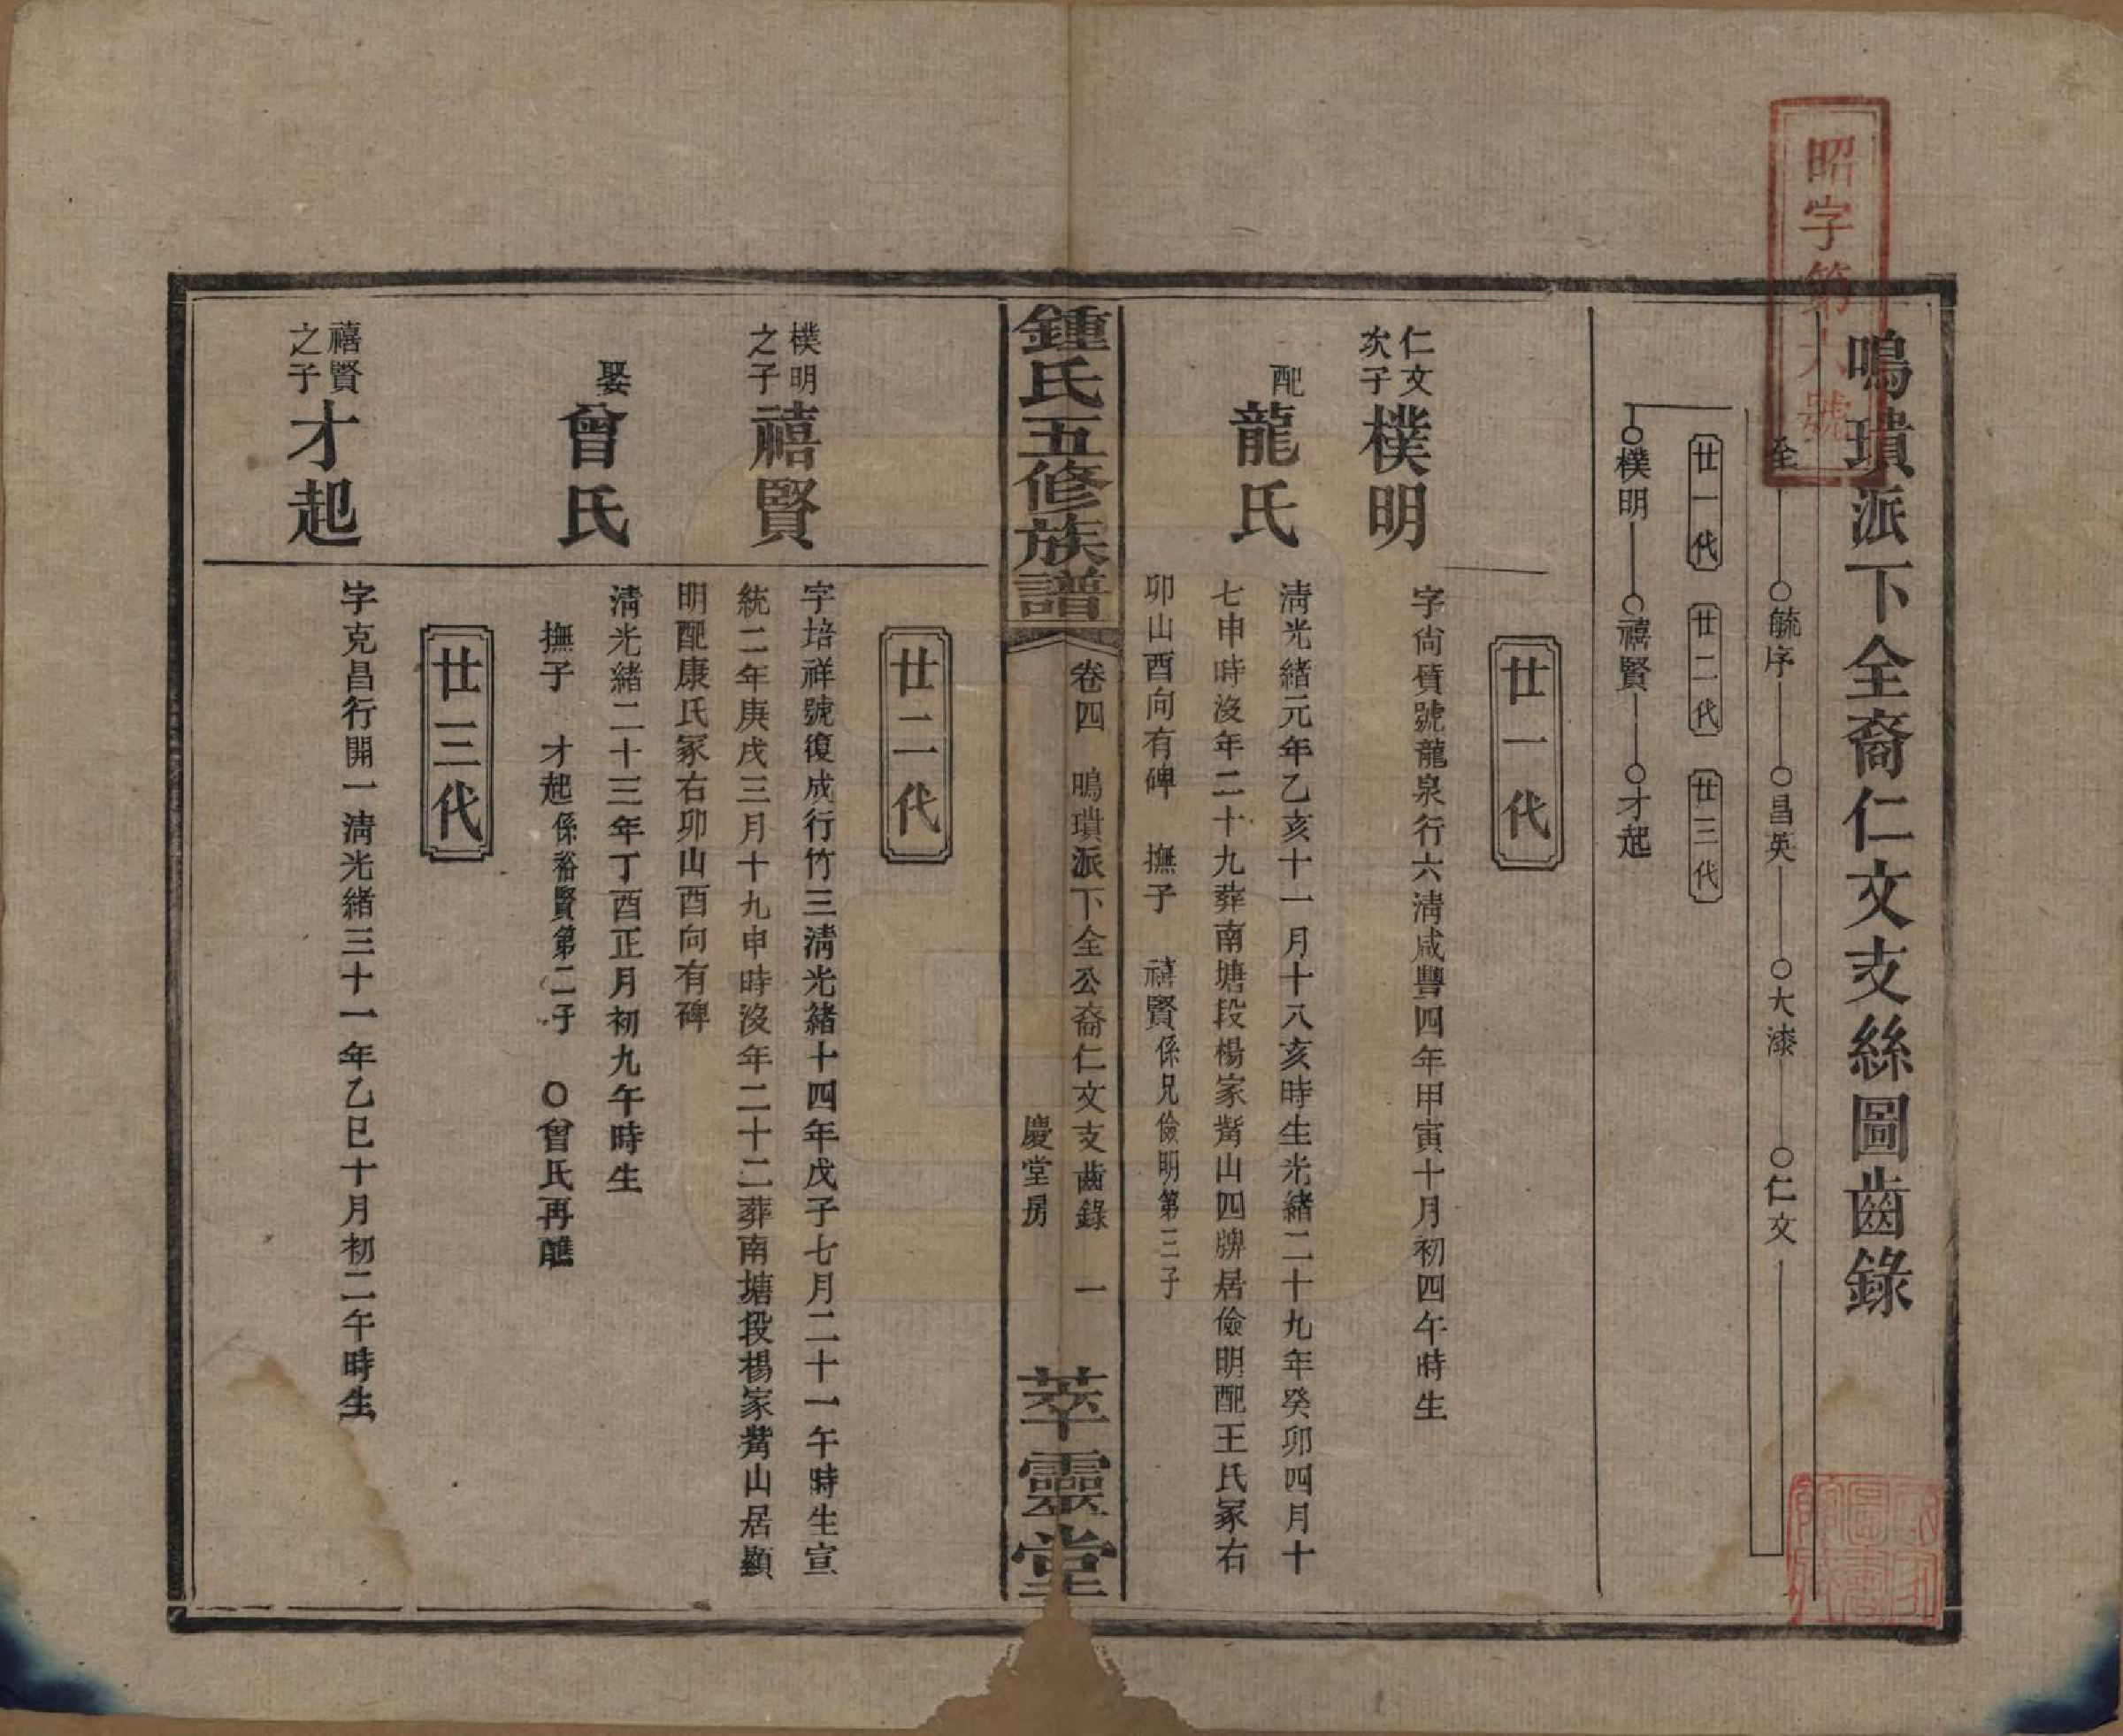 昭字第六號
鳴璜派下全裔仁文支絲圖齒錄
至 毓序 昌英 大漆 仁文
廿一代 廿二代 廿三代
樸明 禧賢 才起
廿一代
仁文次子 樸明
字尙質號龍泉行六淸咸豐四年甲寅十月初四午時生
配 龍氏
淸光緒元年乙亥十一月十八亥時生光緒二十九年癸卯四月十
七申時沒年二十九葬南塘段楊家觜山四牌居儉明配王氏冢右
卯山酉向有碑 撫子 禧賢係兄儉明第三子
鍾氏五修族譜
卷四 鳴璜派下全公裔仁文支齒錄 一
慶堂房
萃靈堂
廿二代
樸明之子 禧賢
字培祥號復成行竹三淸光緒十四年戊子七月二十一午時生宣
統二年庚戌三月十九申時沒年二十二葬南塘段楊家觜山居顯
明配康氏冢右卯山酉向有碑
娶 曾氏
淸光緒二十三年丁酉正月初九午時生
撫子 才起係裕賢第二子 〇曾氏再醮
廿三代
禧賢之子 才起
字克昌行開一淸光緒三十一年乙巳十月初二午時生